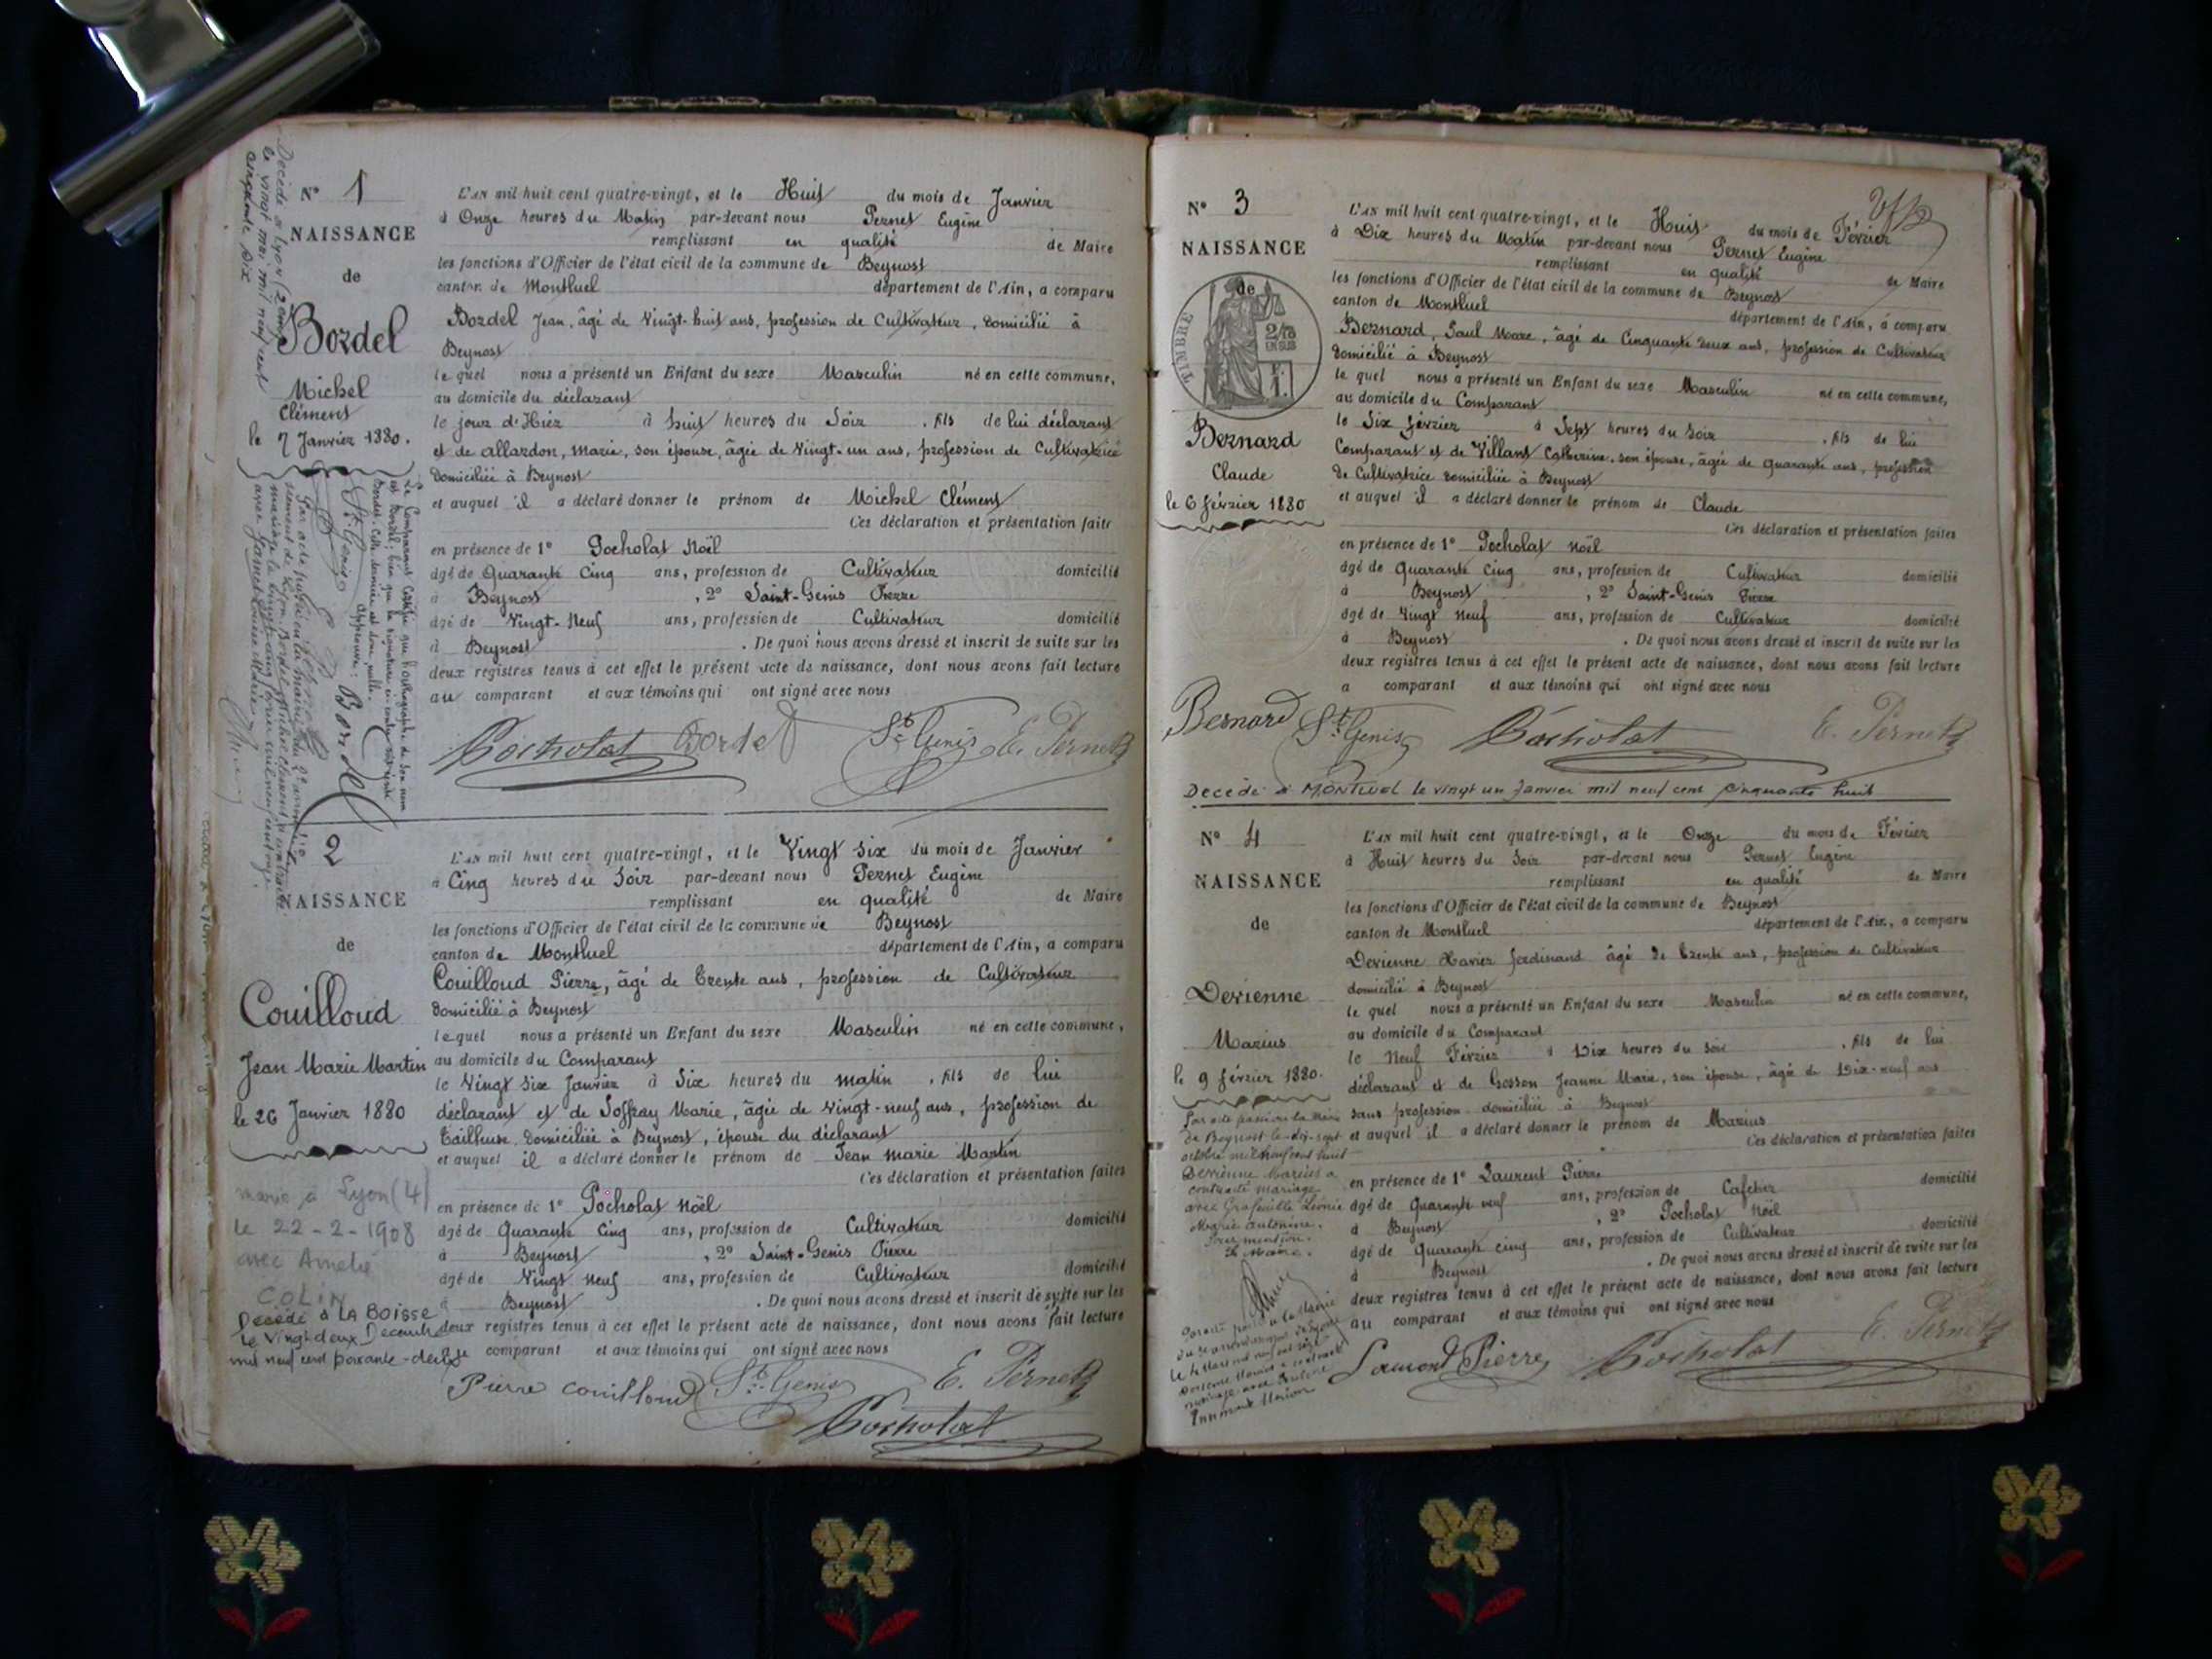 N° 1
NAISSANCE
de
Bordel
Michel
Clément
le 7 Janvier 1880.
Décédé à Lyon (2
le vingt mai mil neuf cent
cinquante six
Le Comparant certifie que l'orthographe de son nom
est Bordel, bien que la signature ci-contre soit
Bordet. Cette dernière est donc nulle.
Approuvé: Bordel
St Genis
L'AN mil huit cent quatre-vingt, et le Huit du mois de Janvier
à Onze heures du Matin par-devant nous Pernet Eugène
remplissant en qualité de Maire
les fonctions d'Officier de l'état civil de la commune de Beynost
canton de Montluel département de l'Ain, a comparu
Bordel Jean, âgé de Vingt-huit ans, profession de Cultivateur, domicilié à
Beynost
le quel nous a présenté un Enfant du sexe Masculin né en cette commune,
au domicile du déclarant
le jour d'Hier à huit heures du Soir, fils de lui déclarant
et de Allardon, Marie, son épouse, âgée de Vingt-un ans, profession de Cultivatrice
domiciliée à Beynost
et auquel il a déclaré donner le prénom de Michel Clément
Ces déclaration et présentation faites
en présence de 1° Pocholat Noël
âgé de Quarante Cinq ans, profession de Cultivateur domicilié
à Beynost, 2° Saint-Genis Pierre
âgé de Vingt-Neuf ans, profession de Cultivateur domicilié
à Beynost. De quoi nous avons dressé et inscrit de suite sur les
deux registres tenus à cet effet le présent acte de naissance, dont nous avons fait lecture
au comparant et aux témoins qui ont signé avec nous
Pocholat Bordet St Genis E. Pernet
2
NAISSANCE
de
Couilloud
Jean Marie Martin
le 26 Janvier 1880
marié à Lyon (4)
le 22-2-1908
avec Amélie
COLIN
Décédé à LA BOISSE
le vingt deux Décembre
mil neuf cent soixante-deux
L'AN mil huit cent quatre-vingt, et le Vingt Six du mois de Janvier
à Cinq heures du Soir par-devant nous Pernet Eugène
remplissant en qualité de Maire
les fonctions d'Officier de l'état civil de la commune de Beynost
canton de Montluel département de l'Ain, a comparu
Couilloud Pierre, âgé de Trente ans, profession de Cultivateur
domicilié à Beynost
lequel nous a présenté un Enfant du sexe Masculin né en cette commune,
au domicile du Comparant
le Vingt Six Janvier à Six heures du matin, fils de lui
déclarant et de Joffray Marie, âgée de Vingt-neuf ans, profession de
Tailleuse, domiciliée à Beynost, épouse du déclarant
et auquel il a déclaré donner le prénom de Jean Marie Martin
Ces déclaration et présentation faites
en présence de 1° Pocholat Noël
âgé de Quarante Cinq ans, profession de Cultivateur domicilié
à Beynost, 2° Saint-Genis Pierre
âgé de Vingt Neuf ans, profession de Cultivateur domicilié
à Beynost. De quoi nous avons dressé et inscrit de suite sur les
deux registres tenus à cet effet le présent acte de naissance, dont nous avons fait lecture
comparant et aux témoins qui ont signé avec nous
Pierre Couilloud St Genis E. Pernet
Pocholat
N° 3
NAISSANCE
de
TIMBRE
Bernard
Claude
le 6 février 1880
L'AN mil huit cent quatre-vingt, et le Huit du mois de Février
à Dix heures du Matin par-devant nous Pernet Eugène
remplissant en qualité de Maire
les fonctions d'Officier de l'état civil de la commune de Beynost
canton de Montluel département de l'Ain, a comparu
Bernard, Paul Marc, âgé de Cinquante deux ans, profession de Cultivateur
domicilié à Beynost
le quel nous a présenté un Enfant du sexe Masculin né en cette commune,
au domicile du Comparant
le Six février à Sept heures du Soir, fils de lui
Comparant et de Villard Catherine, son épouse, âgée de quarante ans, profession
de Cultivatrice domiciliée à Beynost
et auquel il a déclaré donner le prénom de Claude
Ces déclaration et présentation faites
en présence de 1° Pocholat Noël
âgé de Quarante Cinq ans, profession de Cultivateur domicilié
à Beynost, 2° Saint-Genis Pierre
âgé de Vingt Neuf ans, profession de Cultivateur domicilié
à Beynost. De quoi nous avons dressé et inscrit de suite sur les
deux registres tenus à cet effet le présent acte de naissance, dont nous avons fait lecture
a comparant et aux témoins qui ont signé avec nous
Bernard St Genis Pocholat E. Pernet
Décédé à MONTLUEL le vingt un Janvier mil neuf cent cinquante huit
N° 4
NAISSANCE
de
Derienne
Marius
le 9 février 1880.
Par acte passé à la Mairie
de Beynost le dix-sept
octobre mil neuf cent huit
Derienne Marius a
contracté mariage
avec Grafouille Léonie
Marie Antonine.
Pour mention.
Le Maire.
L'AN mil huit cent quatre-vingt, et le Onze du mois de Février
à Huit heures du Soir par-devant nous Pernet Eugène
remplissant en qualité de Maire
les fonctions d'Officier de l'état civil de la commune de Beynost
canton de Montluel département de l'Ain, a comparu
Derienne Xavier Ferdinand âgé de Trente ans, profession de Cultivateur
domicilié à Beynost
le quel nous a présenté un Enfant du sexe Masculin né en cette commune,
au domicile du Comparant
le Neuf Février à Dix heures du Soir, fils de lui
déclarant et de Gosson Jeanne Marie, son épouse, âgée de Dix-neuf ans
sans profession domiciliée à Beynost
et auquel il a déclaré donner le prénom de Marius
Ces déclaration et présentation faites
en présence de 1° Laurent Pierre
âgé de Quarante neuf ans, profession de Cafetier domicilié
à Beynost, 2° Pocholat Noël
âgé de Quarante cinq ans, profession de Cultivateur domicilié
à Beynost. De quoi nous avons dressé et inscrit de suite sur les
deux registres tenus à cet effet le présent acte de naissance, dont nous avons fait lecture
au comparant et aux témoins qui ont signé avec nous
Laurent Pierre Pocholat E. Pernet